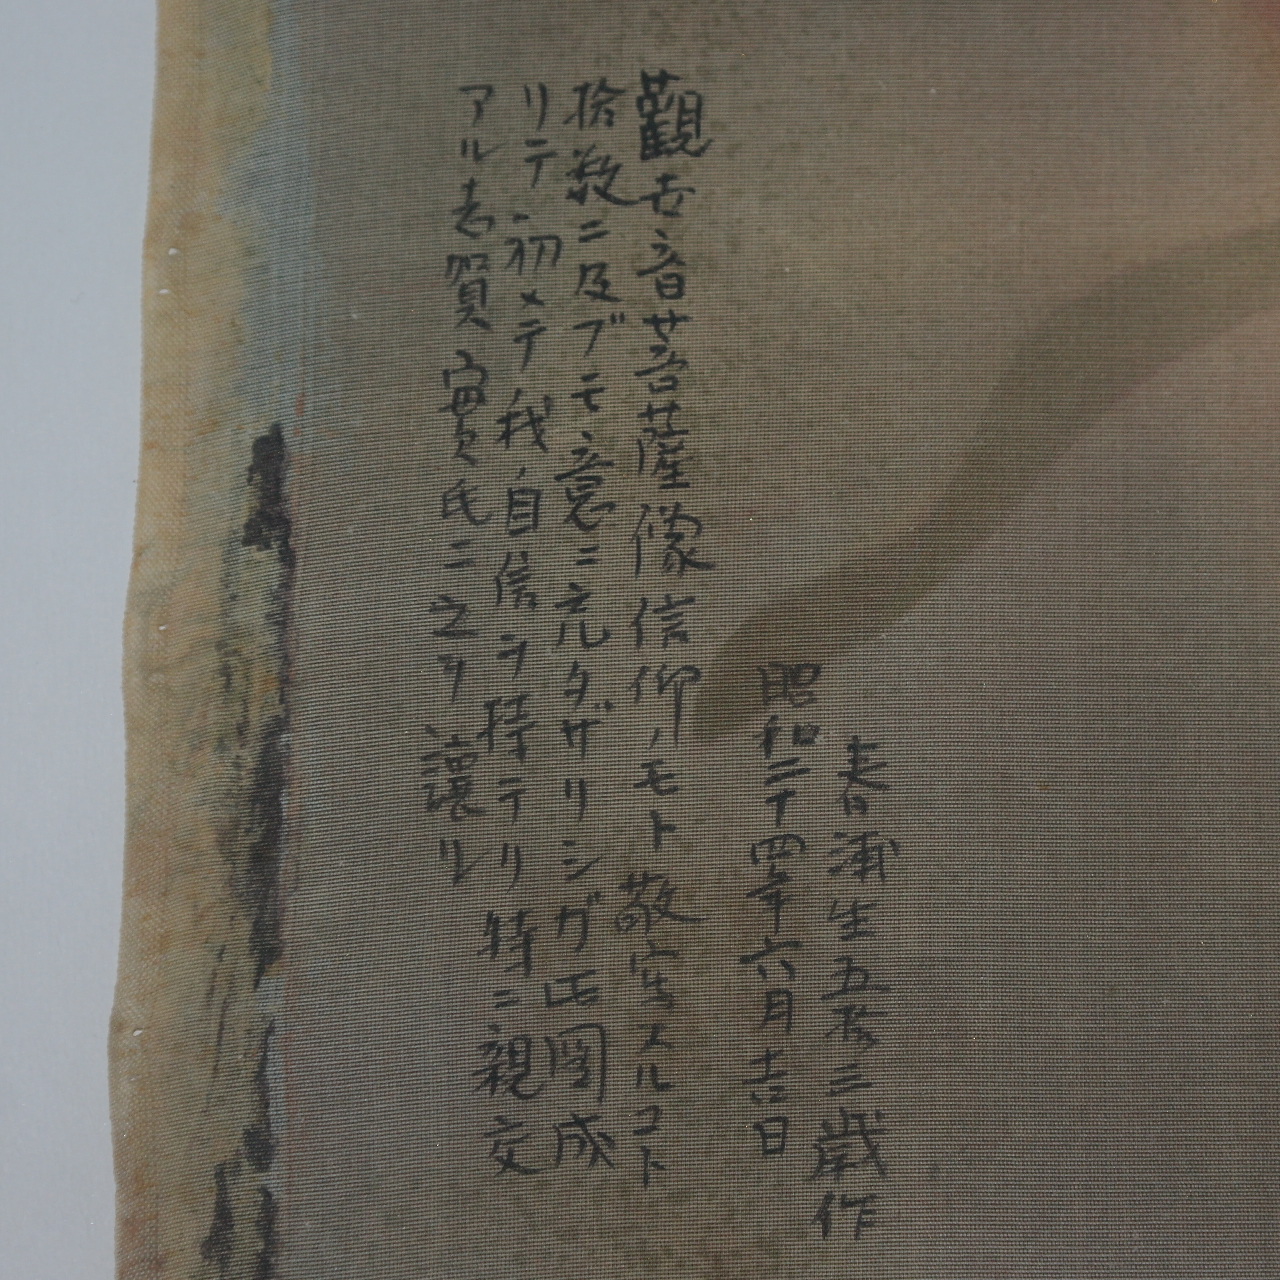 春浦生五拾三歳作
昭和二十四年六月吉日
觀世音菩薩像信仰ノモト敬寫スルコト
拾数ニ及ブモ意ニ充タザリシガ此圖成
リテ初メテ我自信ヲ持テリ特ニ親交
アル志賀實氏ニ之ヲ讓ル